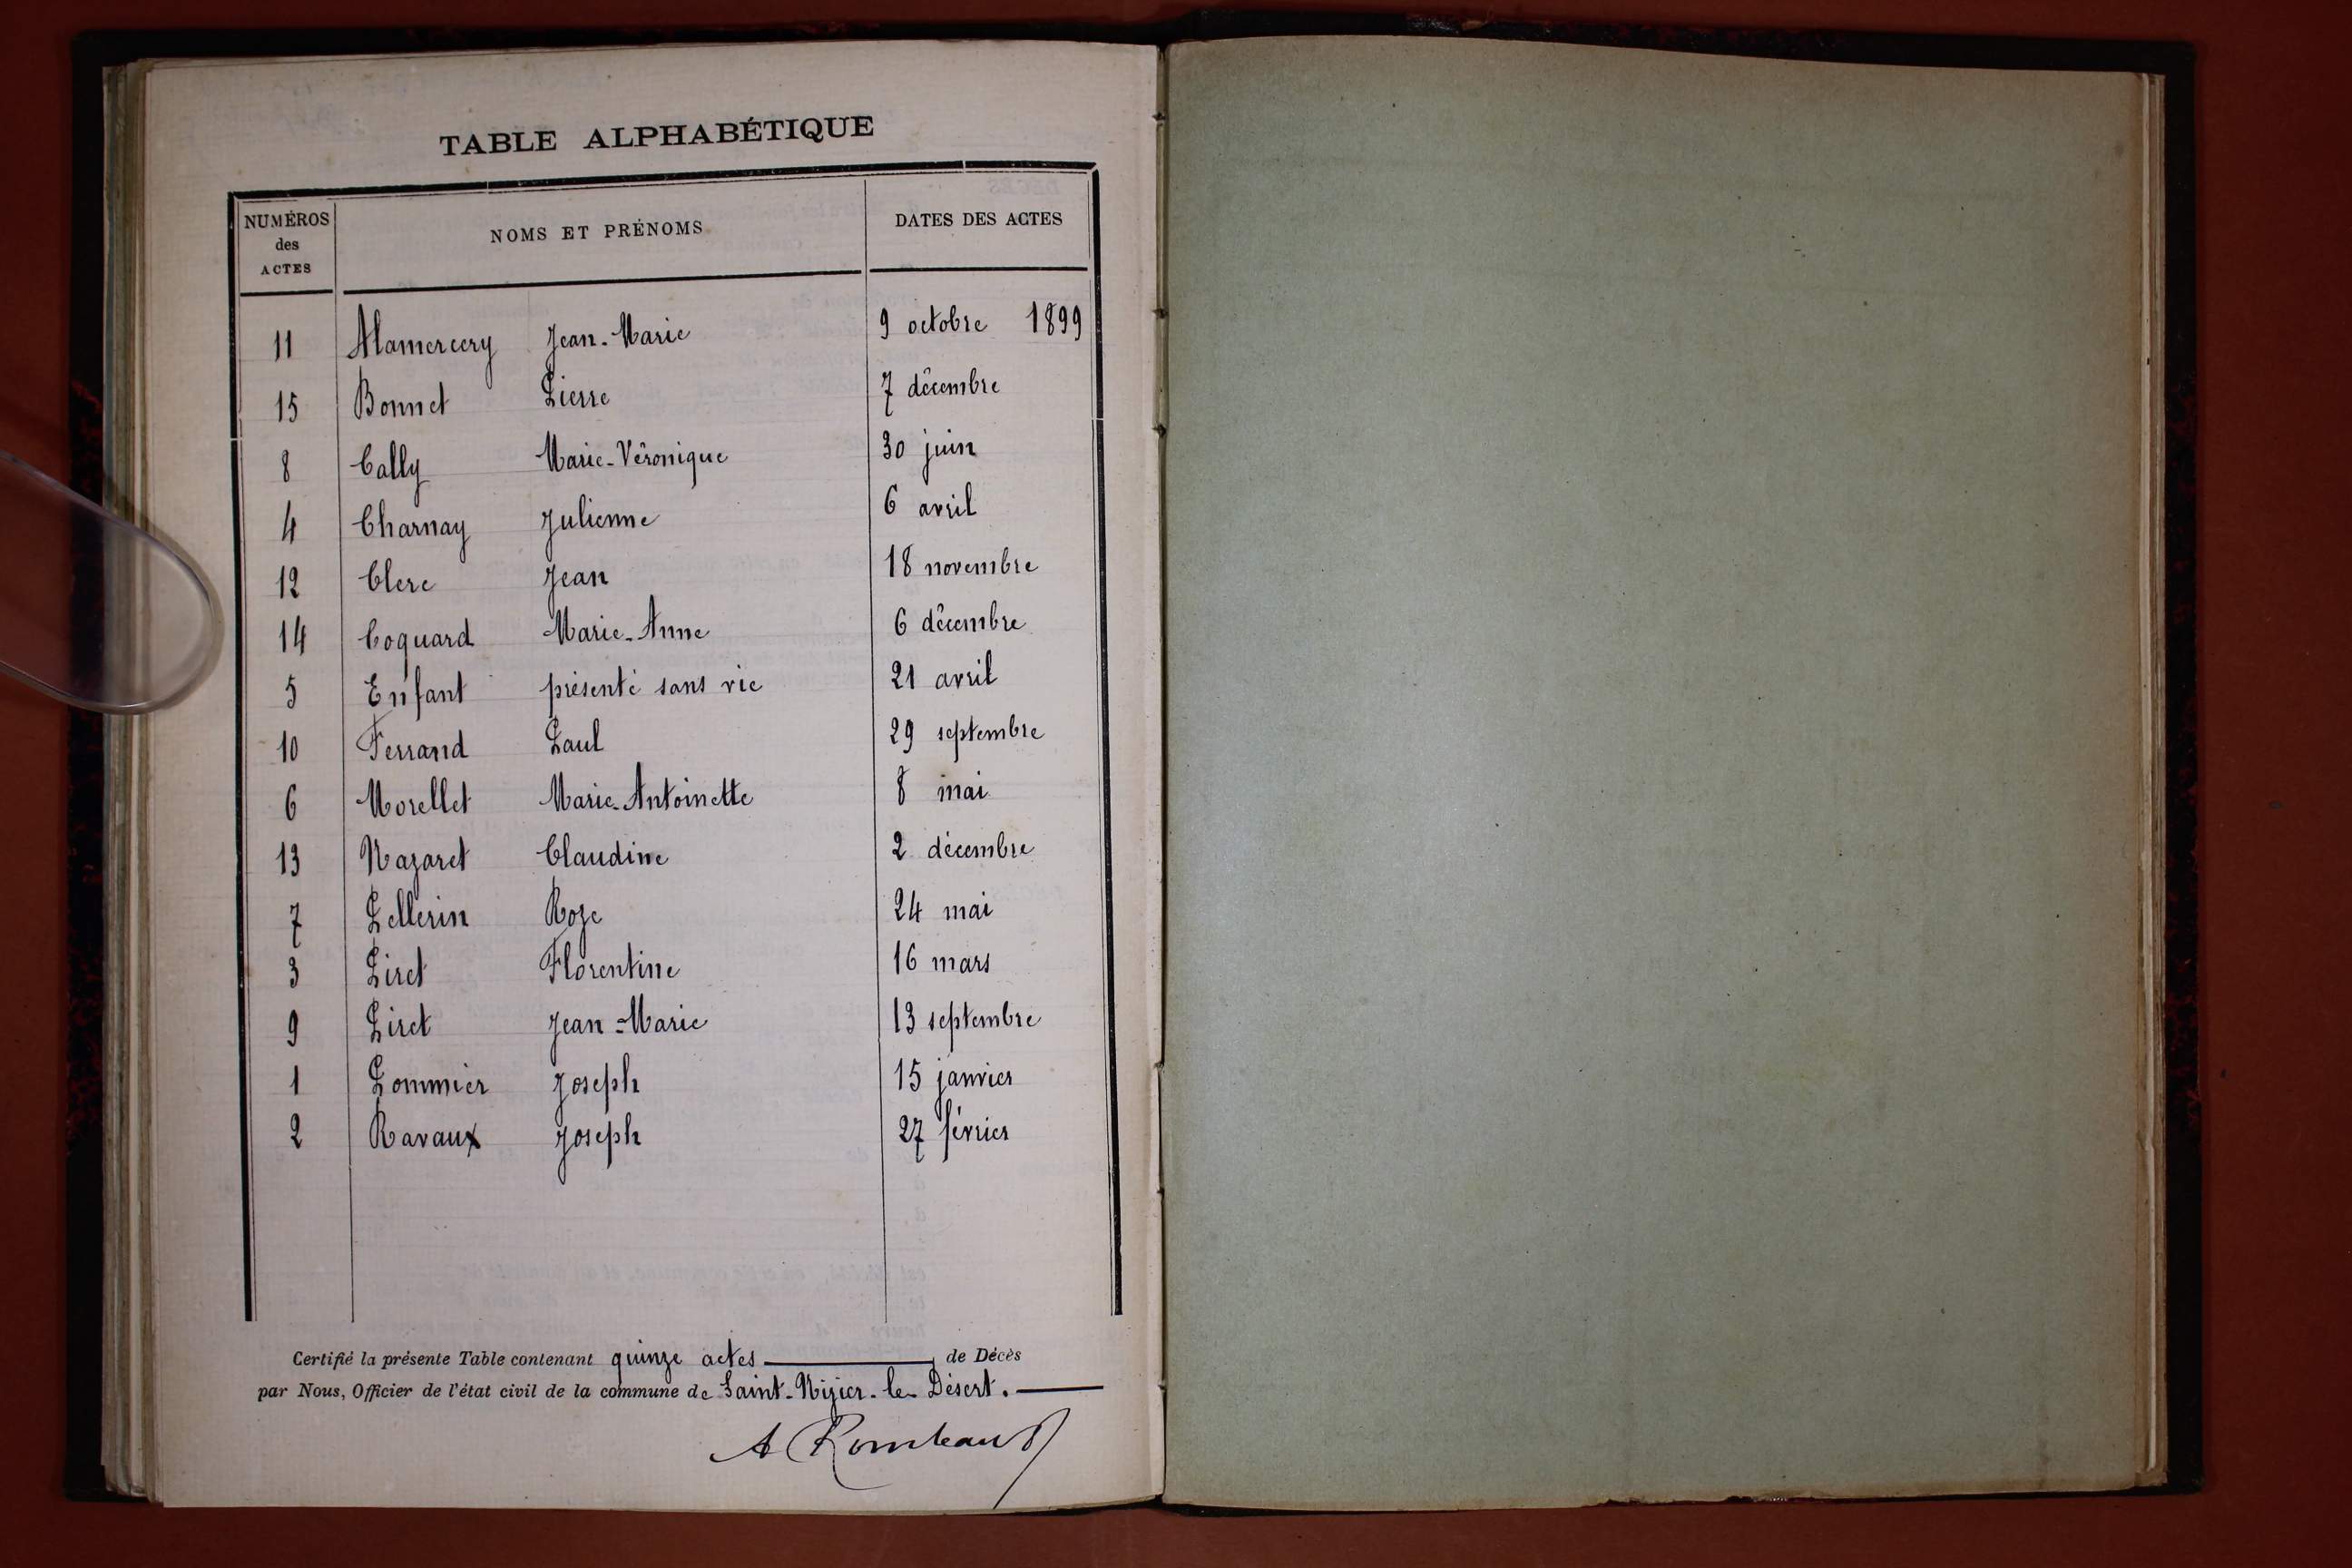 TABLE ALPHABÉTIQUE
NUMÉROS des ACTES NOMS ET PRÉNOMS DATES DES ACTES
11 Alamercery Jean-Marie 9 octobre 1899
15 Bonnet Pierre 7 décembre
8 Cally Marie-Véronique 30 juin
4 Charnay Julienne 6 avril
12 Clerc Jean 18 novembre
14 Coquard Marie-Anne 6 décembre
5 Enfant présenté sans vie 21 avril
10 Ferrand Paul 29 septembre
6 Morellet Marie-Antoinette 8 mai
13 Nazaret Claudine 2 décembre
7 Pellerin Roze 24 mai
3 Piret Florentine 16 mars
9 Piret Jean-Marie 13 septembre
1 Pommier Joseph 15 janvier
2 Ravaux Joseph 27 février
Certifié la présente Table contenant quinze actes de Décès
par Nous, Officier de l'état civil de la commune de Saint-Nizier-le-Désert.